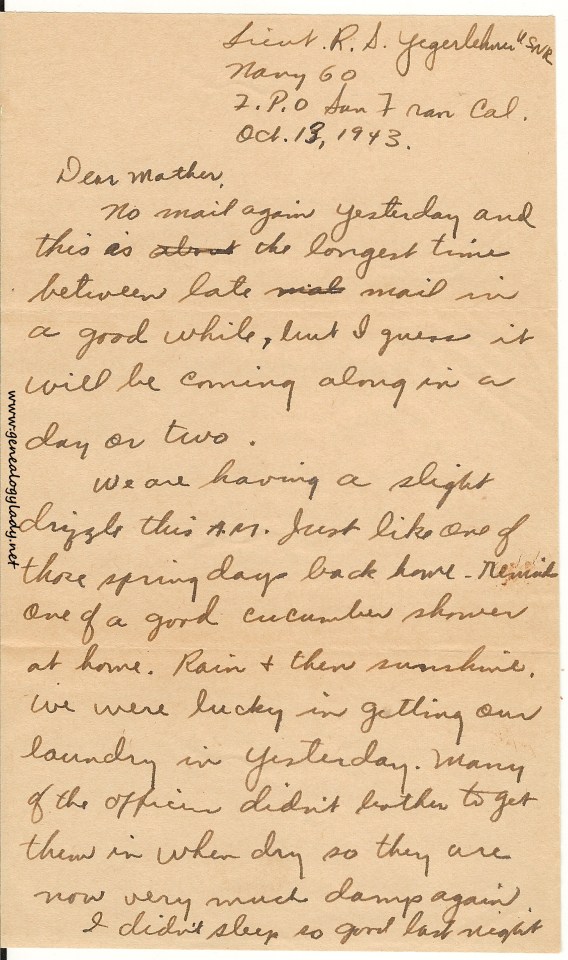 Lieut. R. S. Yegerlehner "SNR
Navy 60
F.P.O San Fran Cal.
Oct. 13, 1943.
Dear Mother,
No mail again yesterday and
this is about the longest time
between late mail mail in
a good while, but I guess it
will be coming along in a
day or two.
We are having a slight
drizzle this A.M. Just like one of
those spring days back home - Remind
one of a good cucumber shower
at home. Rain + then sunshine.
We were lucky in getting our
laundry in yesterday. Many
of the officers didn't bother to get
them in when dry so they are
now very much damp again.
I didn't sleep so good last night
www.genealogylady.net